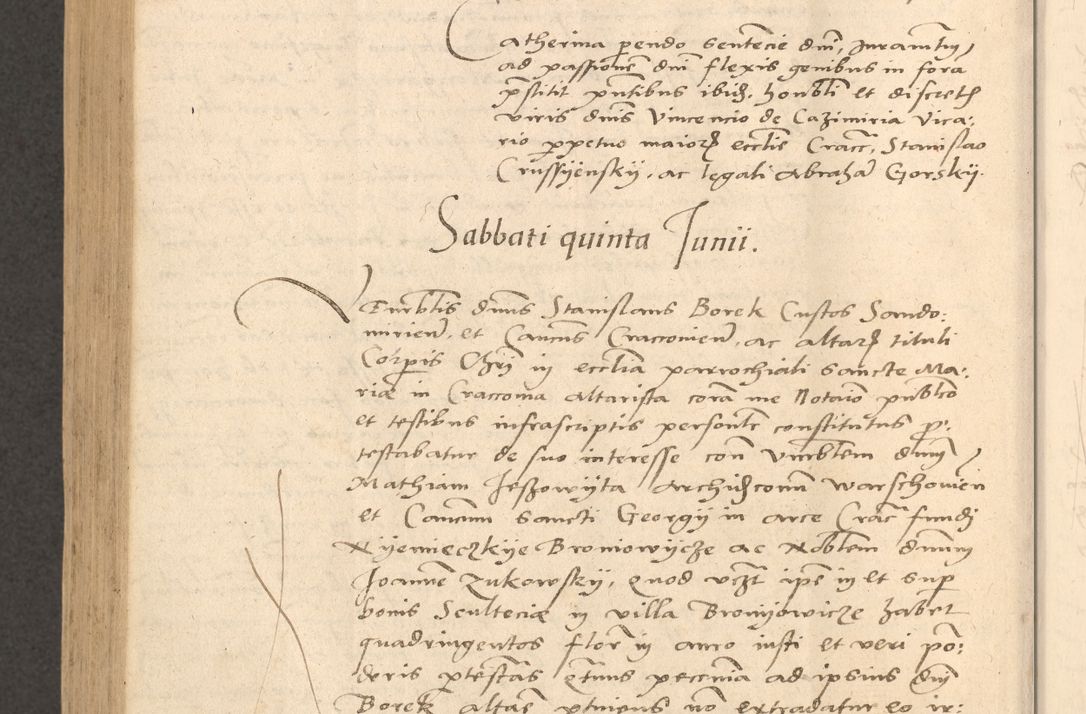 atherina pendo sententie dni, Juramtu
ad passionem dni flexis genibus in fora
pstitit pntibus ibid. honbli et discretis
viris dnis Vincencio de Cazimiria Vica:
rio ppetuo maioris ecctie Cracc, Stanislao
Crussyensky. ac legati Abraham Gorsky.
Sabbati quinta Junii.
Venrblis dnus Stanislaus Borek Custos Sando:
mirien, et Cancus Cracovien, ac altaris tituli
Corpis Chri in ecclia parrochiali sancte Ma:
riæ in Cracovia altarista cora me Notaio publco
et testibus infrascriptis personlr constitutus p:
testabatur de suo interesse con Vnrblem dnm
Mathiam Jeszowyta Archidconm Warschovien
et Cancum sancti Georgy in arce Crac fundi
Nyemieczkye Broniowycze ac Noblem dnum
Joannem Zukowsky, Quod vczt ipse in et sup
bonis Scultecie in villa Bronyowicze habet
quadringentos flor in auro iusti et veri po:
deris ptestas pecunia ad ipsius dni
Borek altae ptinens no extradatur eo ir: